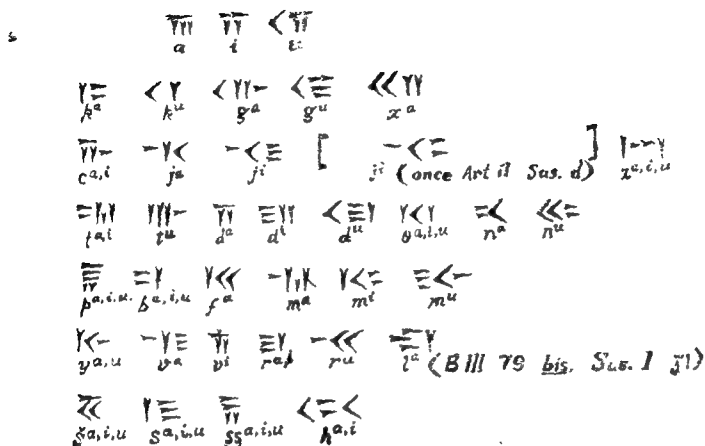 𐎠 𐎡 𐎢
a i u
𐎣 𐎤 𐎥 𐎦 𐎧
kᵃ kᵘ gᵃ gᵘ xᵃ
𐎨 𐎩 𐎪 [ ] 𐏀
cᵃ,ⁱ jᵃ jⁱ jⁱ (once Art II Sus. d) zᵃ,ⁱ,ᵘ
𐎫 𐎬 𐎭 𐎮 𐎯 𐎰 𐎴 𐎵
tᵃ,ⁱ tᵘ dᵃ dⁱ dᵘ θᵃ,ⁱ,ᵘ nᵃ nᵘ
𐎱 𐎲 𐎳 𐎶 𐎷 𐎸
pᵃ,ⁱ,ᵘ bᵃ,ⁱ,ᵘ fᵃ mᵃ mⁱ mᵘ
𐎹 𐎺 𐎻 𐎼 𐎽 𐎾
yᵃ,ᵘ vᵃ vⁱ rᵃ,ⁱ ru lᵃ (B III 79 bis. Sus. I jl)
𐏁 𐎿 𐏂 𐏃
šᵃ,ⁱ,ᵘ sᵃ,ⁱ,ᵘ ssᵃ,ⁱ,ᵘ hᵃ,ⁱ